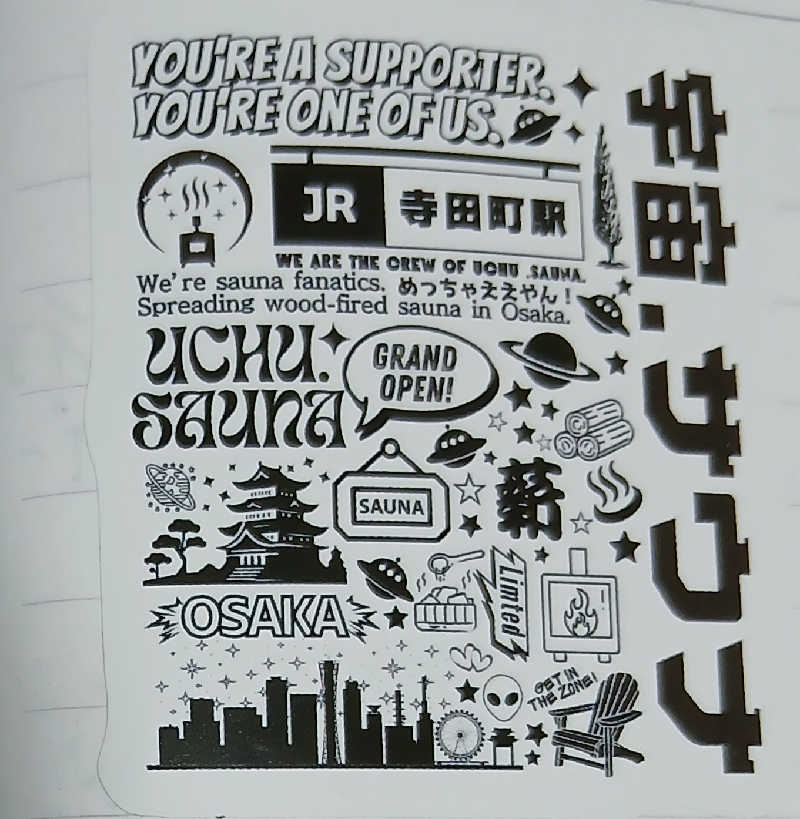 YOU'RE A SUPPORTER.
YOU'RE ONE OF US.
JR 寺田町駅
WE ARE THE CREW OF UCHU .SAUNA.
We're sauna fanatics. めっちゃええやん！
Spreading wood-fired sauna in Osaka.
UCHU.
SAUNA
GRAND
OPEN!
SAUNA
薪
OSAKA
Limted
GET IN
THE ZONE!
宇宙.サウナ